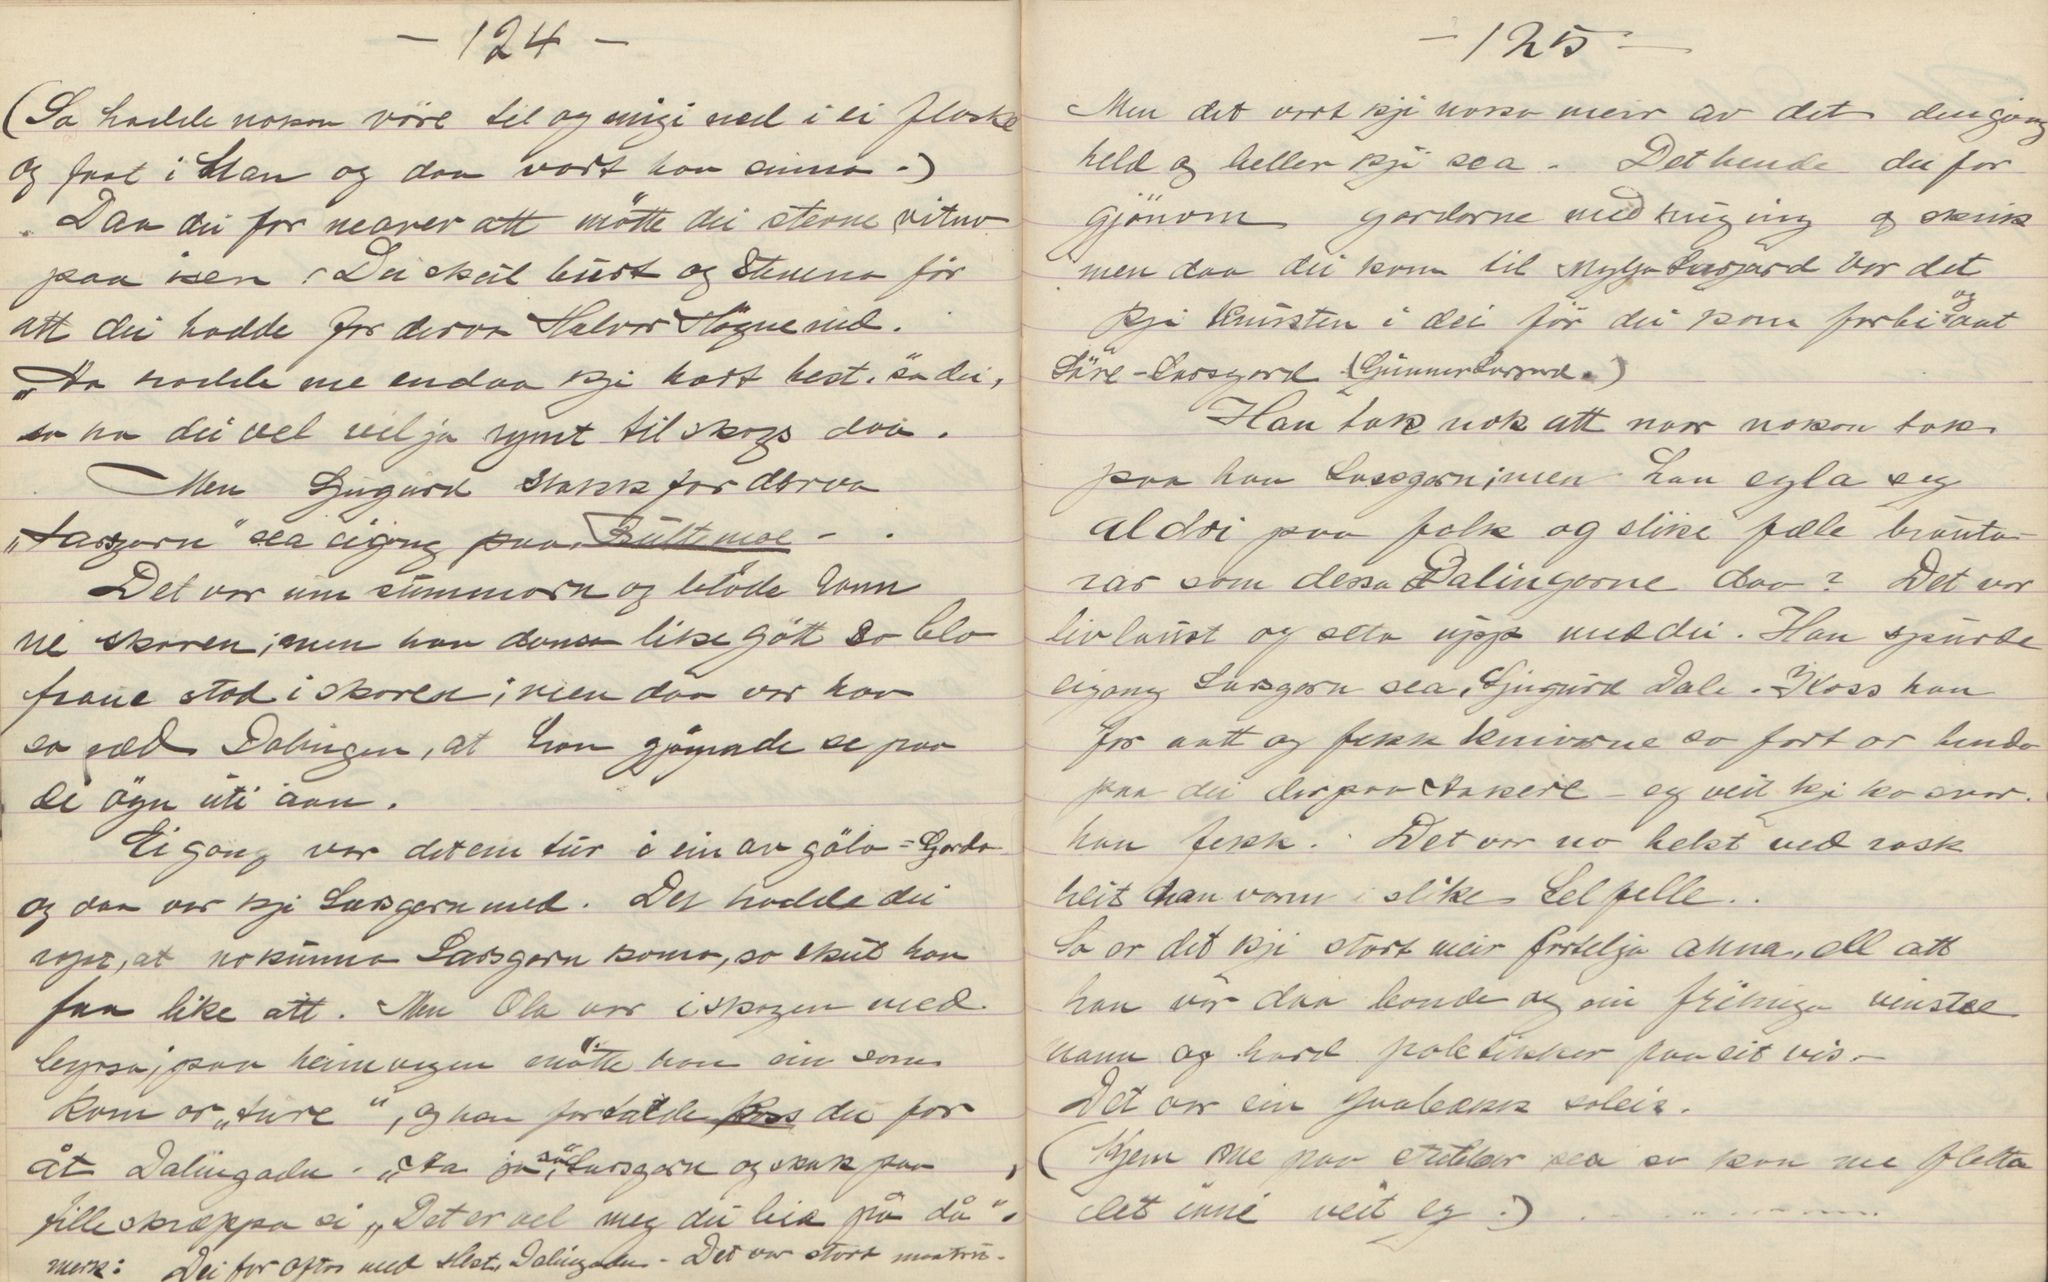 - 124 -
(So hadde nokon vöre til og migi ned i ei flaske
og faat i Han og daa vart han sinna.)
Daa dei for nearer att mötte dei sterne vitno
paa isen. Dei skul burt og stemna för
att dei hadde forderva Halvor Högne ned.
"Ha hadde me endaa kji hatt hest," sa dei,
so ha dei vel vilja rymt til skogs daa.
Men Gjugurd Stakk forderva
"Larsgarn" sea eigong paa Bultemoe - .
Det var um summarn og blöde rann
ne skoren; men han dansa like gött so blo
fraue stod i skoren; men daa var han
so ræd Dalingen, at han gjöymde se paa
ei öyn uti aan.
Ei gong var det ein tur i ein av Göla=Garda
og daa var kji Larsgarn med. Det hadde dei
sagt, at no kunna Larsgarn koma, so skul han
faa like att. Men Ola var i skogen med
byrsa; paa heimvegen mötte han ein som
kom or "ture", og han fortalde koss dei for
åt Dalingadn. "Aa ja" sa Larsgarn og skuk paa
filleskræppa si, "Det er vel meg dei bia på då".
merk: Dei for oftas med Hest, Dalingadn - Det var stort
- 125 -
Men det vart kji noko meir av det dengong
held og heller kji sea. Det hende dei for
gjönom gardarne med huging og skrik
men daa dei kom til Mylja Larsgard var det
kji knursten i dei för dei kom forbi og aat
Söre-Larsgard (Gunnar Larsgard.)
Han tok nok att naar nokon tok
paa han Larsgarn; men han egla seg
aldri paa folk og slike fæle brauta-
rar som dessa Dalingarne daa? Det var
livlaust og seta upp med dei. Han spurde
eigong Larsgarn sea, Gjugurd Dale. Koss han
for aatt og fekk knivarne so fort or henda
paa dei der paa Aakere - eg veit kji ko svar
han fekk. Det var no helst ved rask
heit han vann i slike telfelle..
So er det kji stort meir fortelja anna, ell att
han vör daa bonde og ein frihuga vinstre
mann og hard poletikker paa eit vis.-
Det var ein Gvalekk soleis.
(Kjem me paa stubbar sea so kan me fletta
det inni veit eg.) . . . . . . . .